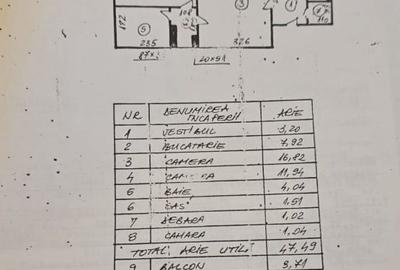 3
1
7
110
5
172
108
235
326
87×
20×54
NR DENUMIREA ÎNCAPERII ARIE
1 VESTIBUL 3,20
2 BUCATARIE 7,92
3 CAMERA 16,82
4 CAMERA 11,94
5 BAIE 4,04
6 SAS 1,51
7 DEBARA 1,02
8 CAMARA 1,04
TOTAL ARIE UTILĂ 47,49
9 BALCON 3,71